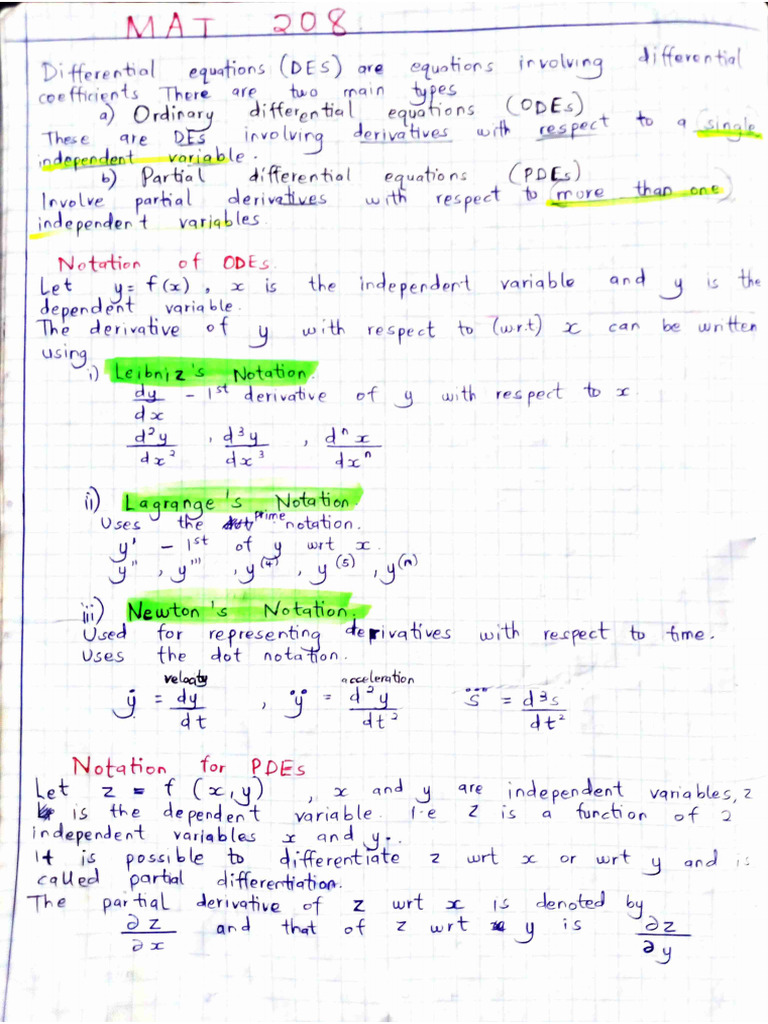 MAT 208
Differential equations (DES) are equations involving differential
coefficients There are two main types
a) Ordinary differential equations (ODEs)
These are DEs involving derivatives with respect to a single
independent variable.
b) Partial differential equations (PDEs)
Involve partial derivatives with respect to (more than one)
independent variables.
Notation of ODEs.
Let y = f(x), x is the independent variable and y is the
dependent variable.
The derivative of y with respect to (wrt) x can be written
using
i) Leibniz's Notation.
dy/dx - 1st derivative of y with respect to x.
d²y/dx² , d³y/dx³ , dⁿx/dxⁿ
ii) Lagrange's Notation.
Uses the prime notation.
y' - 1st of y wrt x.
y'' , y''' , y⁽⁴⁾ , y⁽⁵⁾ , y⁽ⁿ⁾
iii) Newton's Notation.
Used for representing derivatives with respect to time.
Uses the dot notation.
velocity acceleration
ẏ = dy/dt , ÿ = d²y/dt² s⃛ = d³s/dt²
Notation for PDEs
Let z = f (x,y) , x and y are independent variables, z
is the dependent variable. i.e z is a function of 2
independent variables x and y.
It is possible to differentiate z wrt x or wrt y and is
called partial differentiation.
The partial derivative of z wrt x is denoted by
∂z/∂x and that of z wrt y is ∂z/∂y